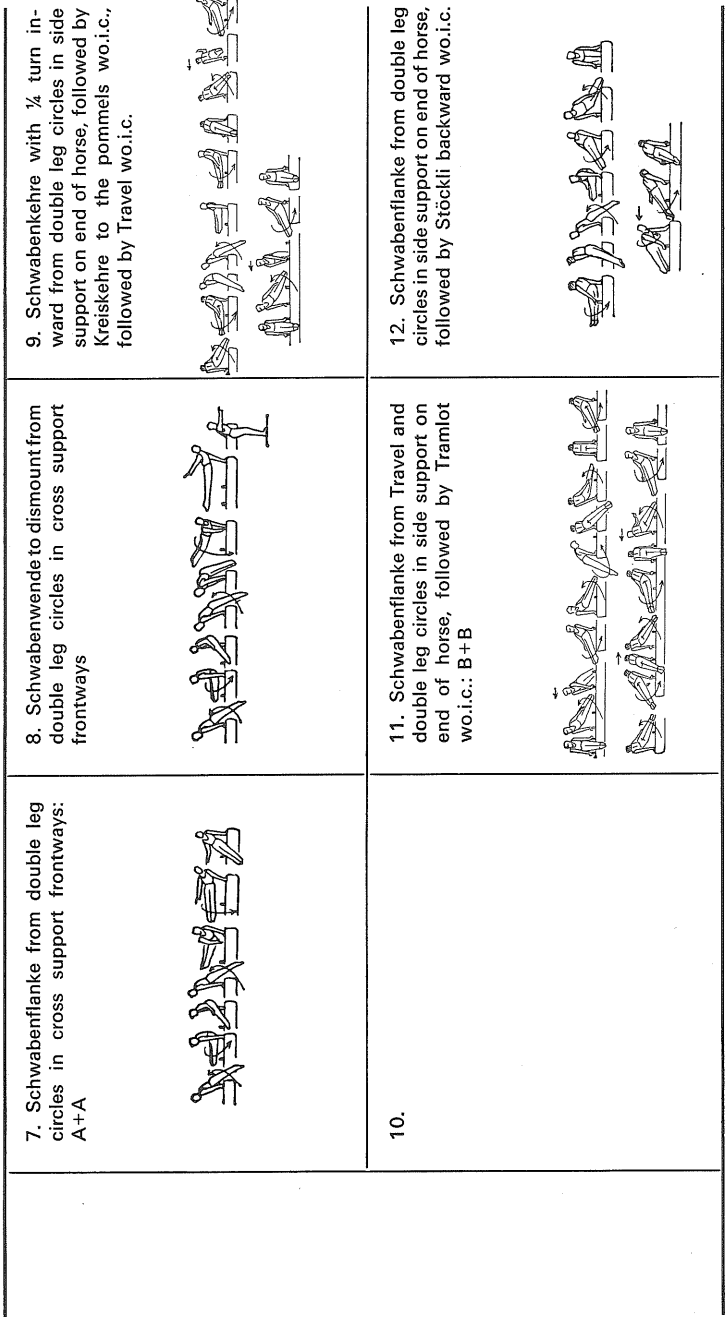 7. Schwabenflanke from double leg
circles in cross support frontways:
A+A
8. Schwabenwende to dismount from
double leg circles in cross support
frontways
9. Schwabenkehre with ¼ turn in-
ward from double leg circles in side
support on end of horse, followed by
Kreiskehre to the pommels wo.i.c.,
followed by Travel wo.i.c.
10.
11. Schwabenflanke from Travel and
double leg circles in side support on
end of horse, followed by Tramlot
wo.i.c.: B+B
12. Schwabenflanke from double leg
circles in side support on end of horse,
followed by Stöckli backward wo.i.c.